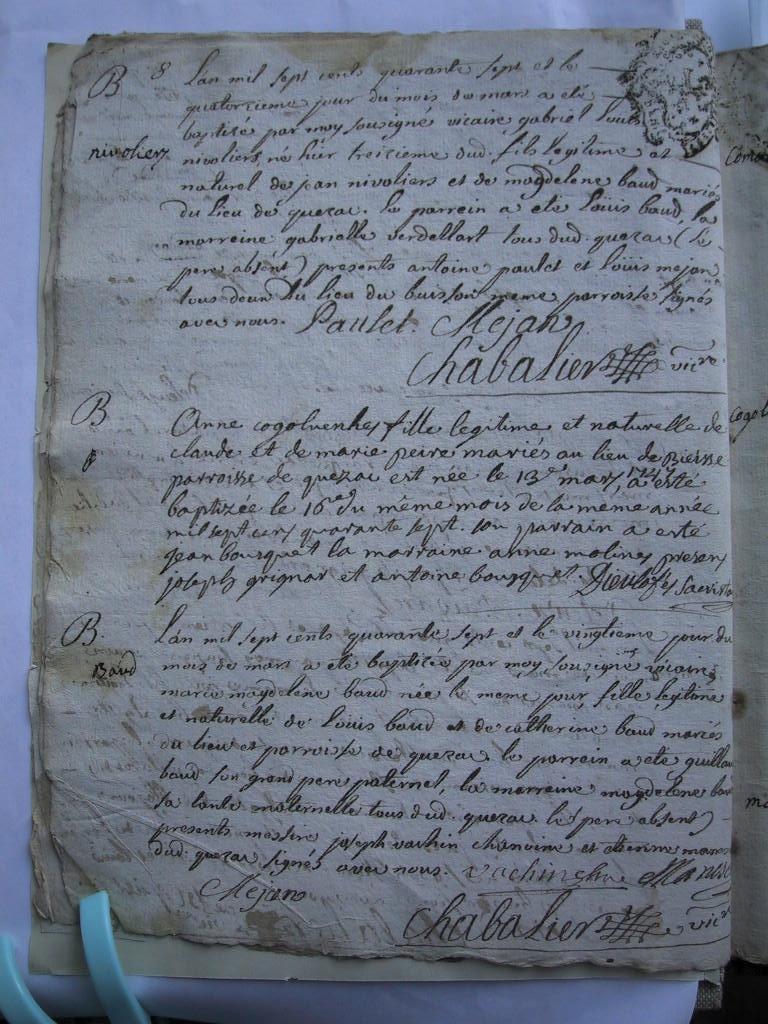 B 8 Lan mil sept cents quarante sept et le
quatorzieme jour du mois de mars a eté
baptisé par moy sousigné vicaire gabriel louis
nivoliers
nivoliers né hier treizieme dud. fils legitime et
naturel de jean nivoliers et de magdelene baud mariés
du lieu de quezac. le parrein a eté loüis baud, la
marreine gabrielle verdellart tous dud. quezac (le
pere absent) presents antoine paulet et loüis mejan
tous deux du lieu du buisson meme parroisse signés
avec nous. Paulet. Mejan
Chabalier vicre
B Anne cogoluenhes fille legitime et naturelle de
claude et de marie peire mariés au lieu de Bieisse
parroisse de quezac est née le 13e mars 1747 a esté
baptizée le 16e du même mois de la meme année
mil sept cens quarante sept. son parrain a esté
jean bousquet la marraine anne molines presens
joseph grignar et antoine bousquet. Dieulofés Sacrista
B. Lan mil sept cents quarante sept et le vingtieme jour du
Baud
mois de mars a eté baptisée par moy sousigné vicaire
marie magdelene baud née le meme jour, fille legitime
et naturelle de loüis baud et de catherine baud mariés
du lieu et parroisse de quezac. le parrein a eté guillau
baud son grand pere paternel, la marreine magdelene baud
sa tante maternelle tous dud. quezac (le pere absent)
presents messire joseph vachin chanoine et etienne
dud. quezac signés avec nous. vachin
Mejan
Chabalier vicre